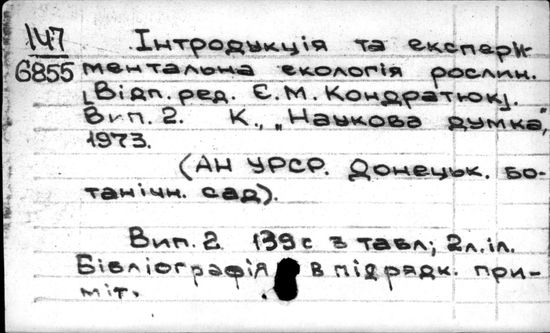 147
6855
Інтродукція та експери-
ментальна екологія рослин.
[Відп. ред. Є.М. Кондратюк].
Вип. 2. К., "Наукова думка",
1973.
(АН УРСР. Донецьк. бо-
танічн. сад).
Вип. 2 139с з табл; 2л.іл.
Бібліографія в підрядк. при-
міт.